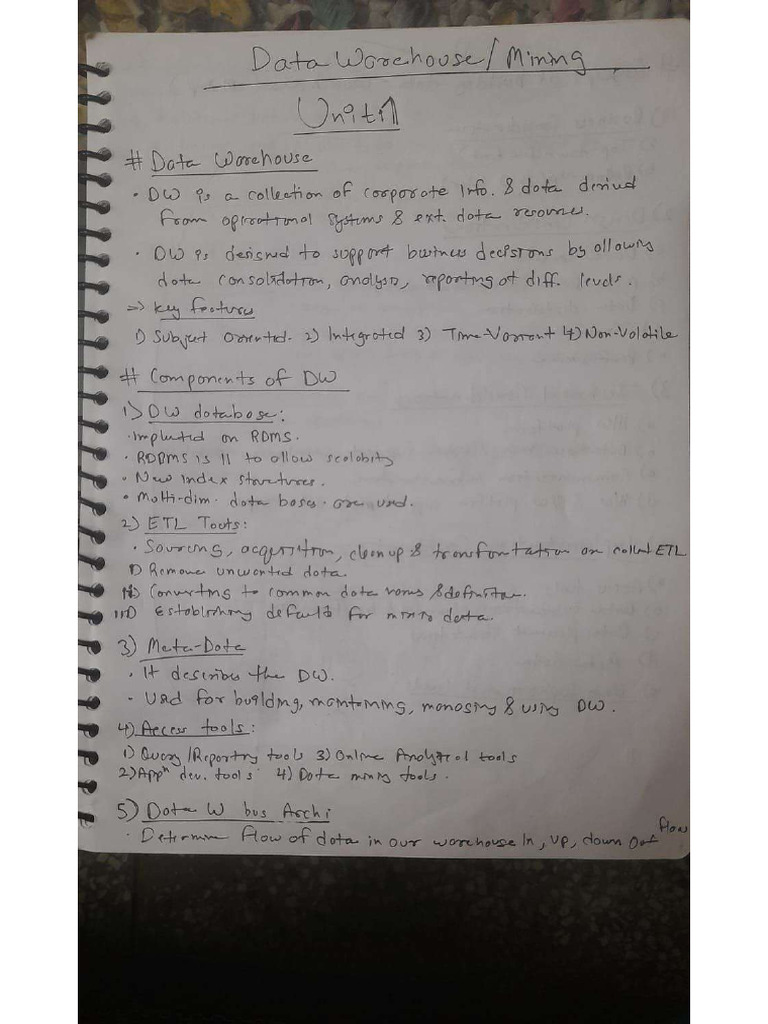 Data Warehouse / Mining
Unit 1
# Data Warehouse
• DW is a collection of corporate Info. & data derived
from operational systems & ext. data resources.
• DW is designed to support business decisions by allowing
data consolidation, analysis, reporting at diff. levels.
=> Key features
1) Subject oriented. 2) Integrated 3) Time-Variant 4) Non-Volatile
# Components of DW
1) DW database:
• on RDMS.
• RDBMS is || to allow
• New Index structures.
• Multi-dim. data bases are used.
2) ETL Tools:
• Sourcing, acquisition, cleanup & transformation are called ETL
i) Remove unwanted data.
ii) Converting to common data names &
iii) Establishing defaults for data.
3) Meta-Data
• It describes the DW.
• Used for building, maintaining, managing & using DW.
4) Access tools:
1) Query/Reporting tools 3) Online Analytical tools
2) Appn dev. tools 4) Data mining tools.
5) Data W bus Archi
• Determine flow of data in our warehouse In, up, down Out flow